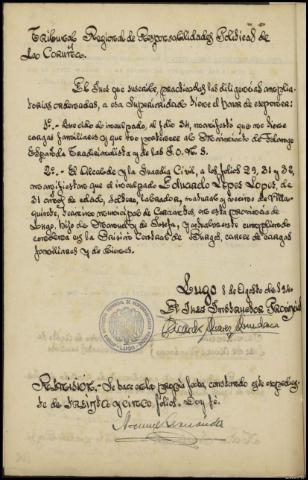 Tribunal Regional de Responsabilidades Políticas de
La Coruña.
El Juez que suscribe, practicadas las diligencias amplia-
torias ordenadas, a esa Superioridad tiene el honor de exponer:
1º.- Que dicho inculpado, al folio 34, manifestó que no tiene
cargas familiares y que no pertenece al Movimiento de Falange
Española Tradicionalista y de las J.O.N.S.
2º.- El Alcalde y la Guardia Civil, a los folios 29, 31 y 32,
manifiestan que el inculpado Eduardo López López, de
21 años de edad, soltero, labrador, natural y vecino de Villa-
quinte, término municipal de Cervantes, en esta provincia de
Lugo, hijo de Manuel y de Josefa, y actualmente cumpliendo
condena en la Prisión Central de Burgos, carece de cargas
familiares y de bienes.
Lugo 8 de Agosto de 1940
El Juez Instructor Provincial
REMISIÓN.- Se hace en la propia fecha, constando este expedien-
te de treinta y cinco folios. Doy fé.